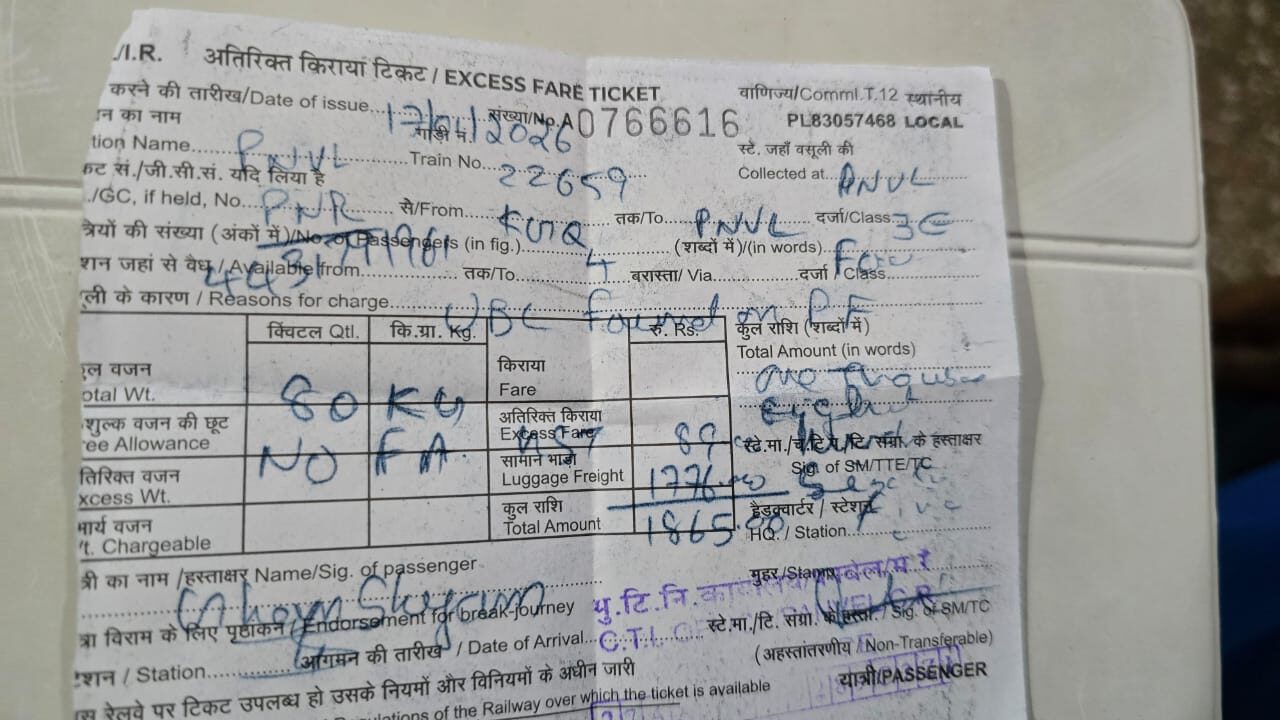 ./I.R. अतिरिक्त किराया टिकट / EXCESS FARE TICKET वाणिज्य/Comml.T.12 स्थानीय
करने की तारीख/Date of issue... 17/01/2026 संख्या/No.A 0766616 PL83057468 LOCAL
न का नाम गाड़ी नं. स्टे. जहाँ वसूली की
tion Name... PNVL Train No... 22659 Collected at... PNVL
कट सं./जी.सी.सं. यदि लिया है
./GC, if held, No... PNR से/From... तक/To... PNVL दर्जा/Class... 3E
त्रियों की संख्या (अंकों में)/No. of Passengers (in fig.)... 4 (शब्दों में)/(in words)... Four
शन जहां से वैध / Available from... तक/To... बरास्ता/ Via... दर्जा / Class...
ूली के कारण / Reasons for charge... UBL Found on PF
क्विंटल Qtl. कि.ग्रा. Kg. रु. Rs. कुल राशि (शब्दों में)
Total Amount (in words)
ुल वजन किराया
otal Wt. 80 KG Fare
शुल्क वजन की छूट अतिरिक्त किराया
ree Allowance NO FA. Excess Fare 89 स्टे.मा./च.टि.प./टि. संग्रा. के हस्ताक्षर
तिरिक्त वजन सामान भाड़ा Sig. of SM/TTE/TC
xcess Wt. Luggage Freight 1776.00
मार्य वजन कुल राशि हैडक्वार्टर / स्टेशन
t. Chargeable Total Amount 1865.00 HQ. / Station...
त्री का नाम /हस्ताक्षर Name/Sig. of passenger मुहर/Stamp
Ghanshyam
त्रा विराम के लिए पृष्ठांकन / Endorsement for break-journey स्टे.मा./टि. संग्रा. के हस्ता./ Sig. of SM/TC
टेशन / Station... आगमन की तारीख / Date of Arrival... (अहस्तांतरणीय / Non-Transferable)
स रेलवे पर टिकट उपलब्ध हो उसके नियमों और विनियमों के अधीन जारी यात्री/PASSENGER
of the Railway over which the ticket is available